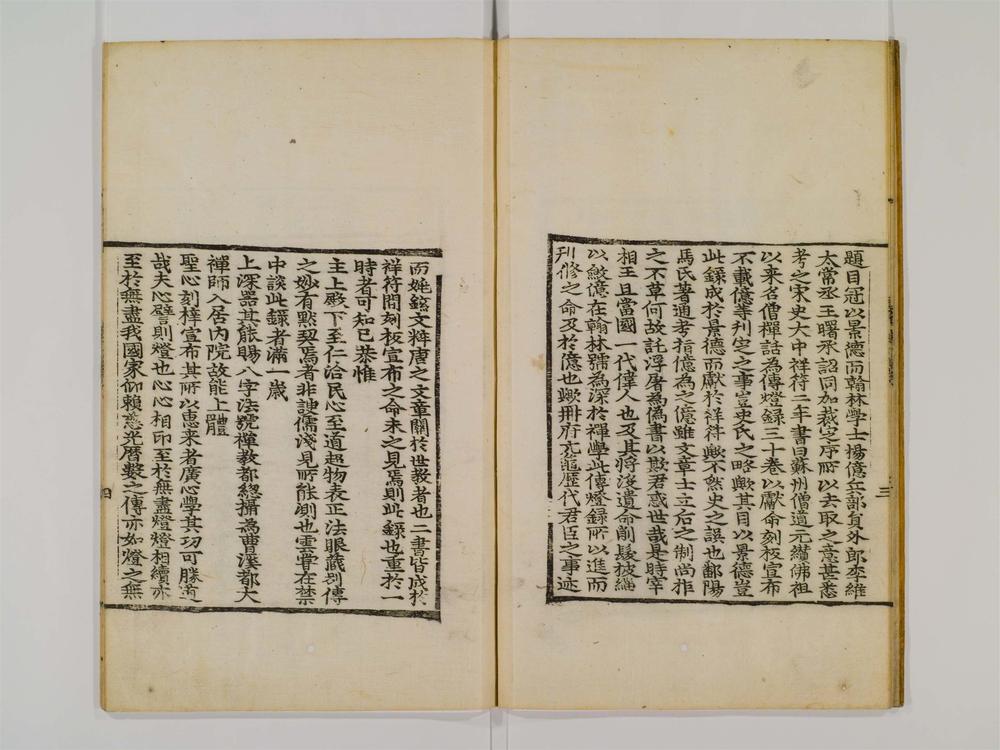 題目冠以景德而翰林學士楊億兵部員外郎李維
太常丞王曙承詔同加裁定序所以去取之意甚悉
考之宋史大中祥符二年書曰蘇州僧道元纉佛祖
以来名僧禪話為傳燈録三十卷以獻命刻板宣布
不載億等刊定之事豈史氏之略歟其目以景德豈
此録成於景德而獻於祥符歟不然史之誤也鄱陽
馬氏著通考指億為之億雖文章士立后之制尚拒
之不草何故託浮屠為偽書以欺君惑世哉是時宰
相王旦當國一代偉人也及其將沒遺命削髮披緇
以斂億在翰林號為深於禪學此傳燈録所以進而
刊修之命及於億也歟冊府元龜歷代君臣之事迹
而姚鉉文粹唐之文章關於世教者也二書皆成於
祥符間刻板宣布之命未之見焉則此録也重於一
時者可知已恭惟
主上殿下至仁洽民心至道超物表正法眼藏別傳
之妙有默契焉者非謏儒淺見所能測也雲曾在禁
中談此録者滿一歲
上深器其能賜八字法號禪教都摠攝為曹溪都大
禪師入居內院故能上體
聖心刻梓宣布其所以惠来者廣心學其功可勝道
哉夫心譬則燈也心心相印至於無盡燈燈相續亦
至於無盡我國家仰賴慈光曆數之傳亦如燈之無
三
四